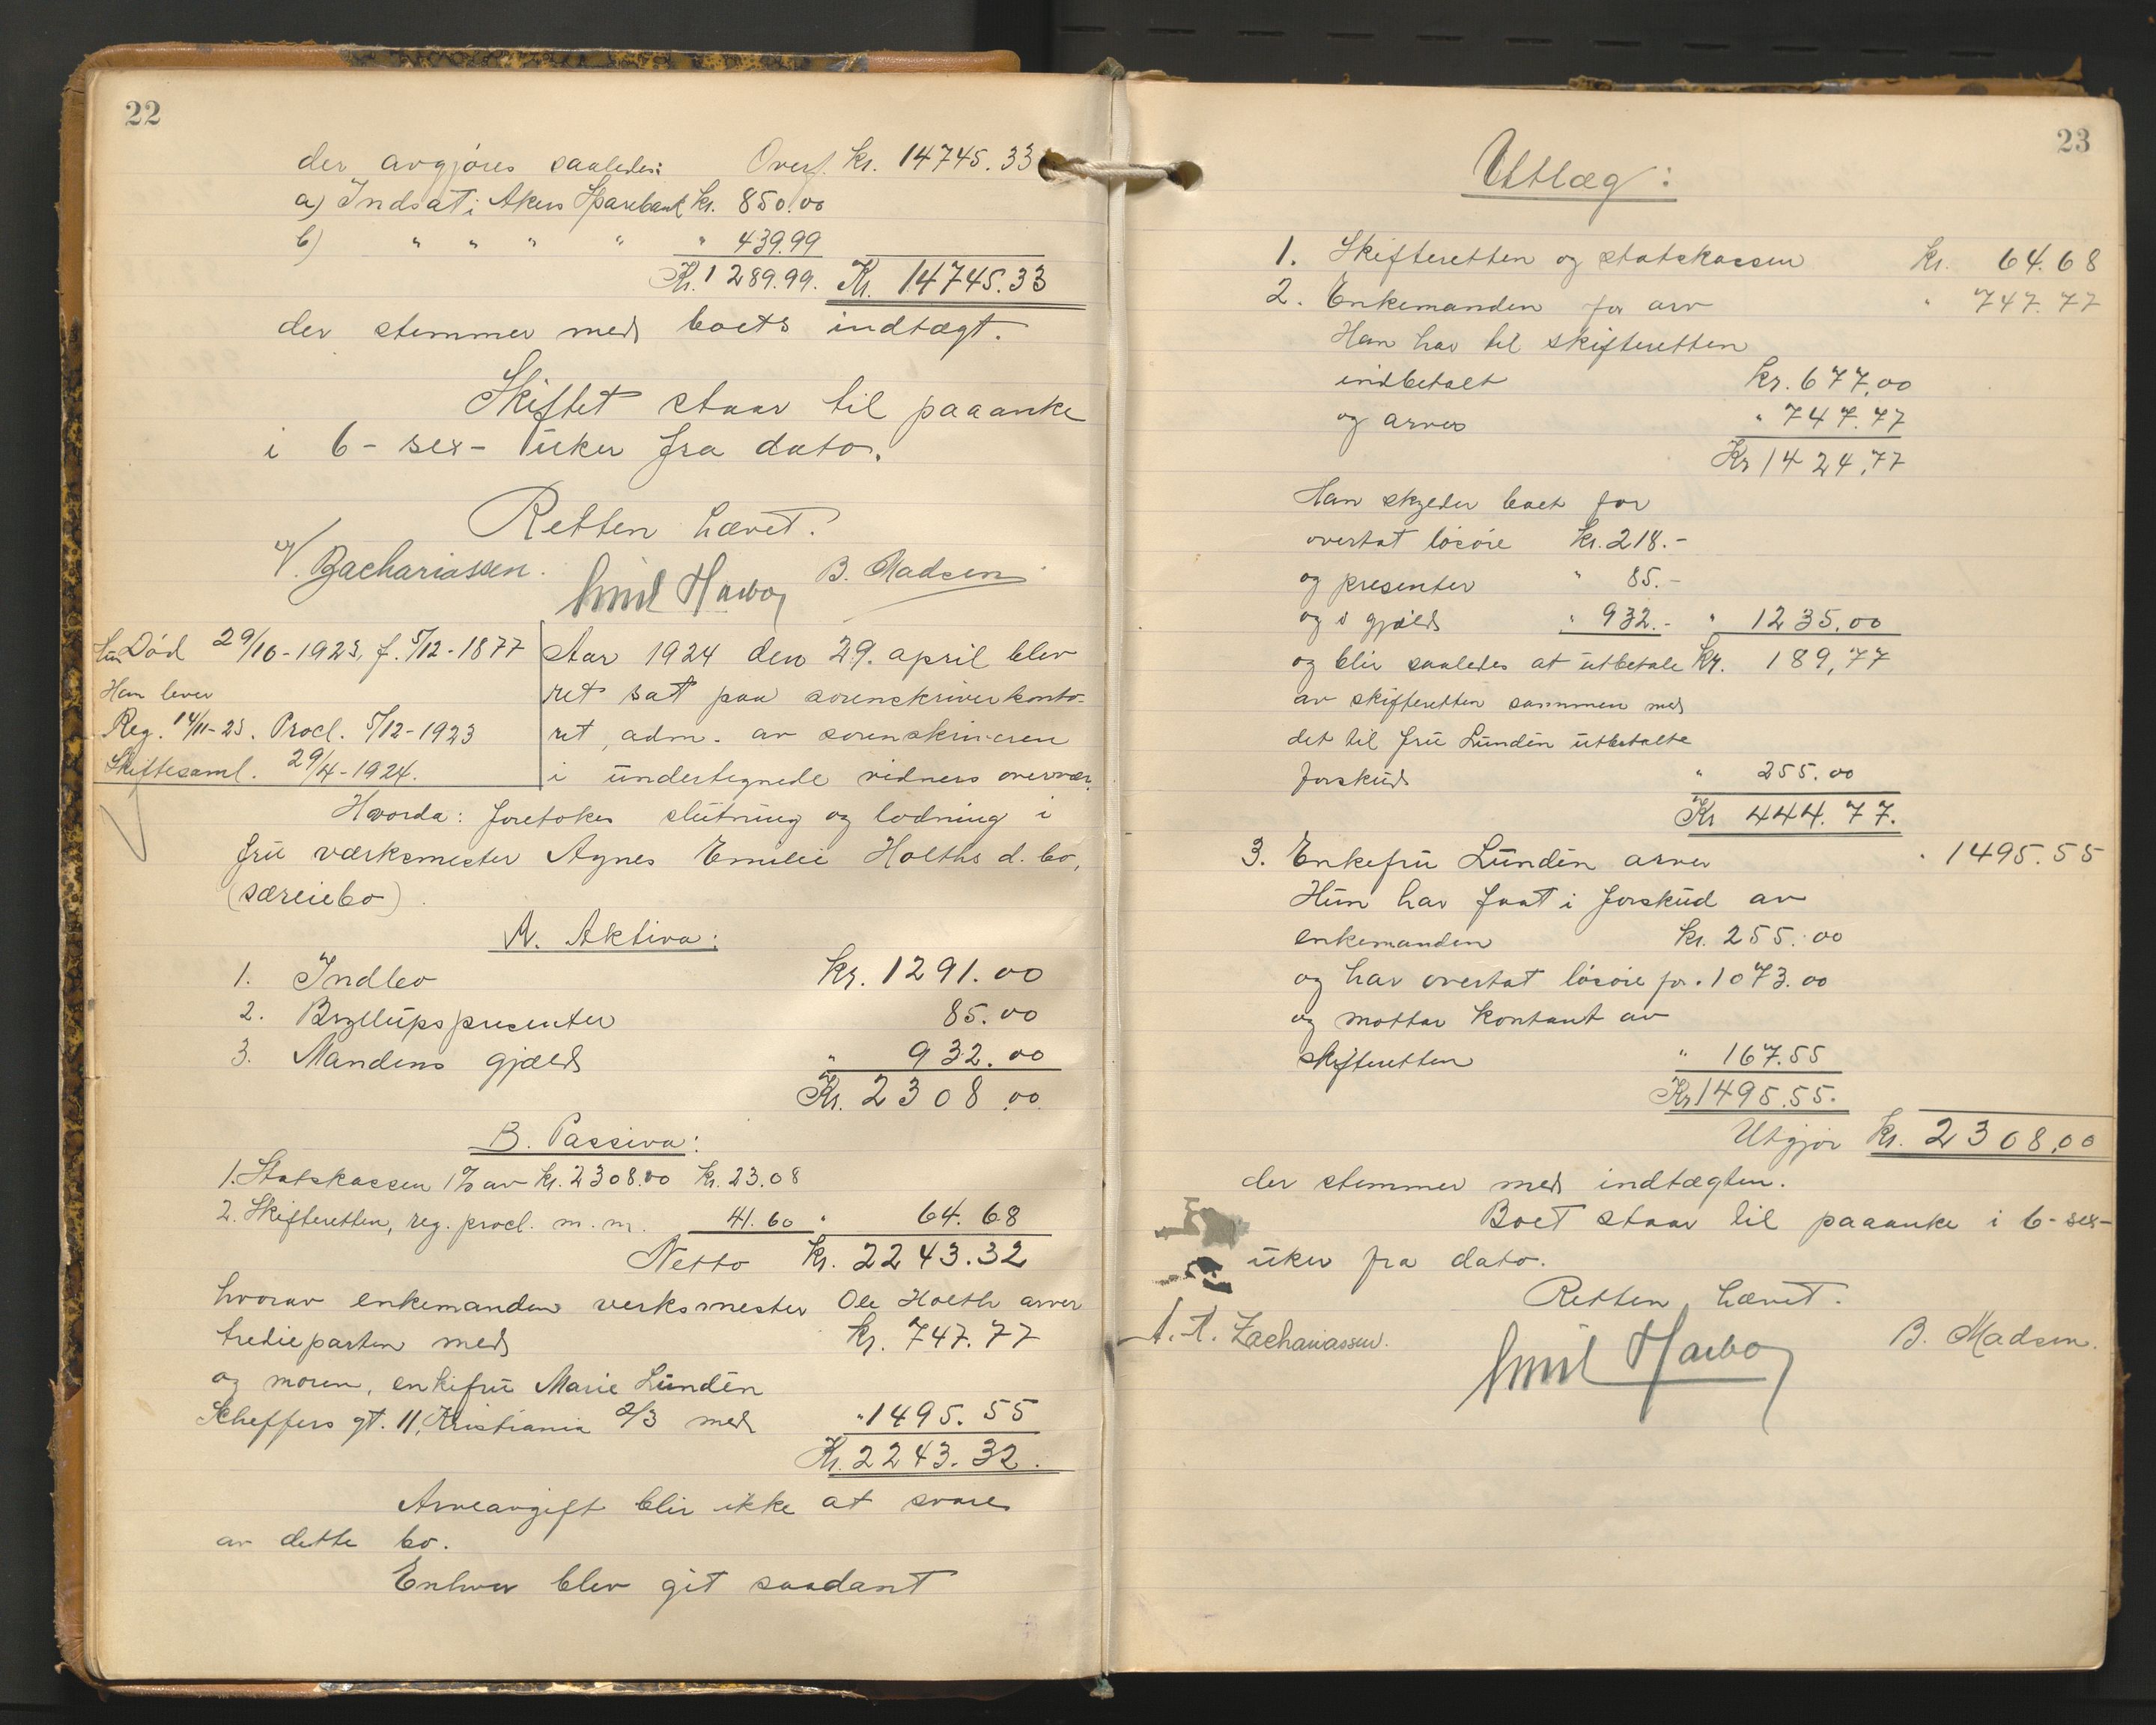 22
der avgjøres saaledes: Overf. kr. 14745.33
a) Indsat i Akers Sparebank kr. 850.00
b) " " " " " 439.99
Kr. 1289.99. Kr. 14745.33
der stemmer med boets indtægt.
Skiftet staar til paaanke
i 6 - sex - uker fra dato.
Retten hævet.
V. Zachariassen. Emil Harboy B. Madsen
Hun Død 29/10-1923, f. 5/12-1877
Han lever
Reg. 14/11-23. Procl. 5/12-1923
Skiftesaml. 29/4-1924.
Aar 1924 den 29. april blev
ret sat paa sorenskriverkonto-
ret, adm. av sorenskriveren
i undertegnede vidners overvær.
Hvorda: foretokes slutning og lodning i
fru værksmester Agnes Emilie Holths d. bo,
(særeiebo).
A. Aktiva:
1. Indbo kr. 1291.00
2. Bryllupspresenter 85.00
3. Mandens gjæld " 932.00
Kr. 2308.00
B. Passiva:
1. Statskassen 1% av kr. 2308.00 kr. 23.08
2. Skifteretten, reg. procl. m. m. 41.60 " 64.68
Netto kr. 2243.32
hvorav enkemanden verksmester Ole Holth arver
tredieparten med kr. 747.77
og moren, enkefru Marie Lundén
Scheffers gt. 11, Kristiania 2/3 med " 1495.55
Kr. 2243.32.
Arveavgift blir ikke at svare
av dette bo.
Enhver blev git saadant
23
Utlæg:
1. Skifteretten og statskassen kr. 64.68
2. Enkemanden for arv " 747.77
Han har til skifteretten
indbetalt kr. 677,00
og arver " 747.77
Kr 1424,77
Han skylder boet for
overtat løsøre kr. 218.-
og presenter " 85.-
og i gjæld " 932.- " 1235,00
og blir saaledes at utbetale Kr. 189,77
av skifteretten sammen med
det til fru Lundén utbetalte
forskud " 255.00
Kr 444.77.
3. Enkefru Lundén arver " 1495.55
Hun har faat i forskud av
enkemanden kr. 255.00
og har overtat løsøre for " 1073.00
og mottar kontant av
skifteretten " 167.55
Kr 1495.55.
Utgjør kr. 2308,00
der stemmer med indtægten.
Boet staar til paaanke i 6 - sex -
uker fra dato.
Retten hævet.
A. A. Zachariassen. Emil Harboy B. Madsen.